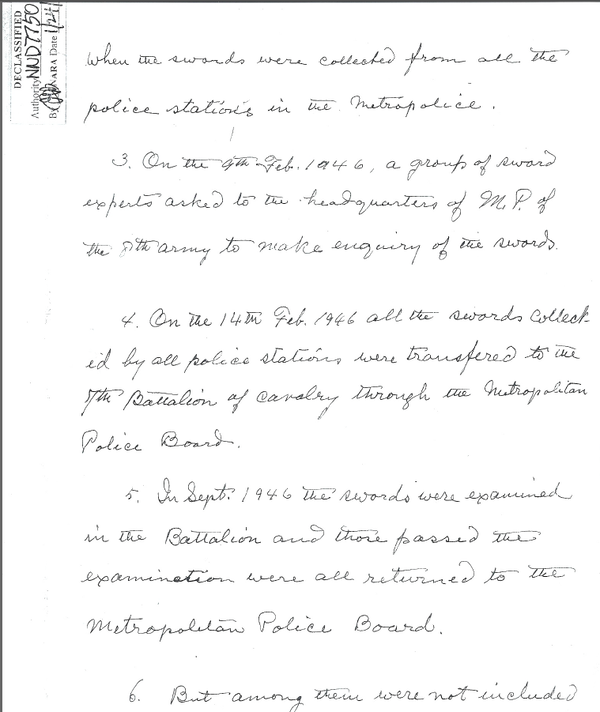 DECLASSIFIED
Authority NND 7750
By NARA Date
when the swords were collected from all the
police stations in the Metropolice.
3. On the 9th Feb. 1946, a group of sword
experts asked to the headquarters of M.P. of
the 8th army to make enquiry of the swords.
4. On the 14th Feb. 1946 all the swords collect-
ed by all police stations were transfered to the
Battalion of cavalry through the Metropolitan
Police Board.
5. In Sept. 1946 the swords were examined
in the Battalion and those passed the
examination were all returned to the
Metropolitan Police Board.
6. But among them were not included